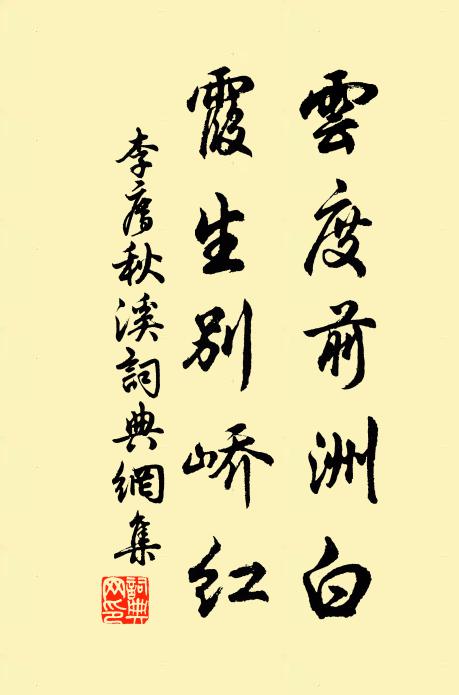 雲度前洲白
霞生別嶠紅
李廌秋溪詞典網集
詞典網印